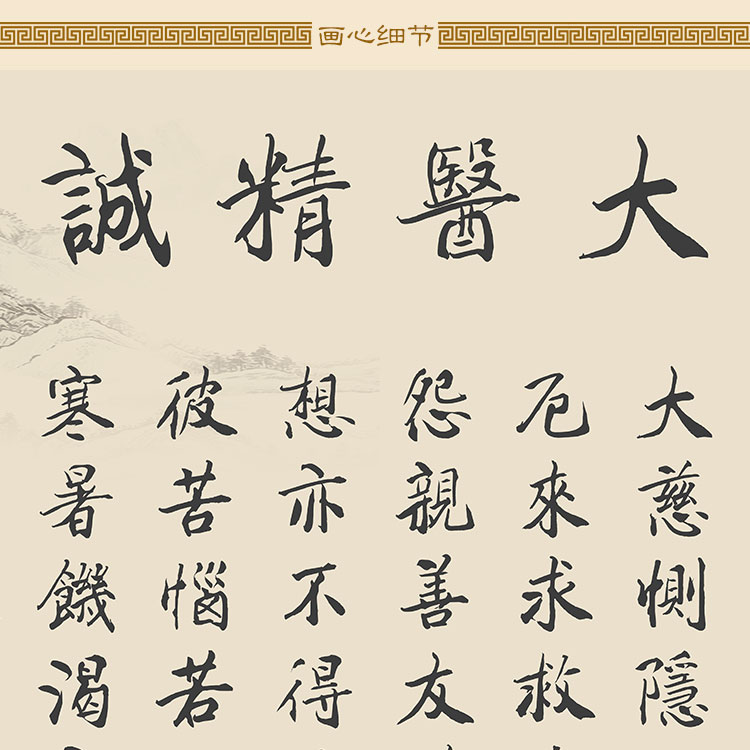 画心细节
大醫精誠
大慈惻隱
厄來求救
怨親善友
想亦不得
彼苦惱若
寒暑饑渴